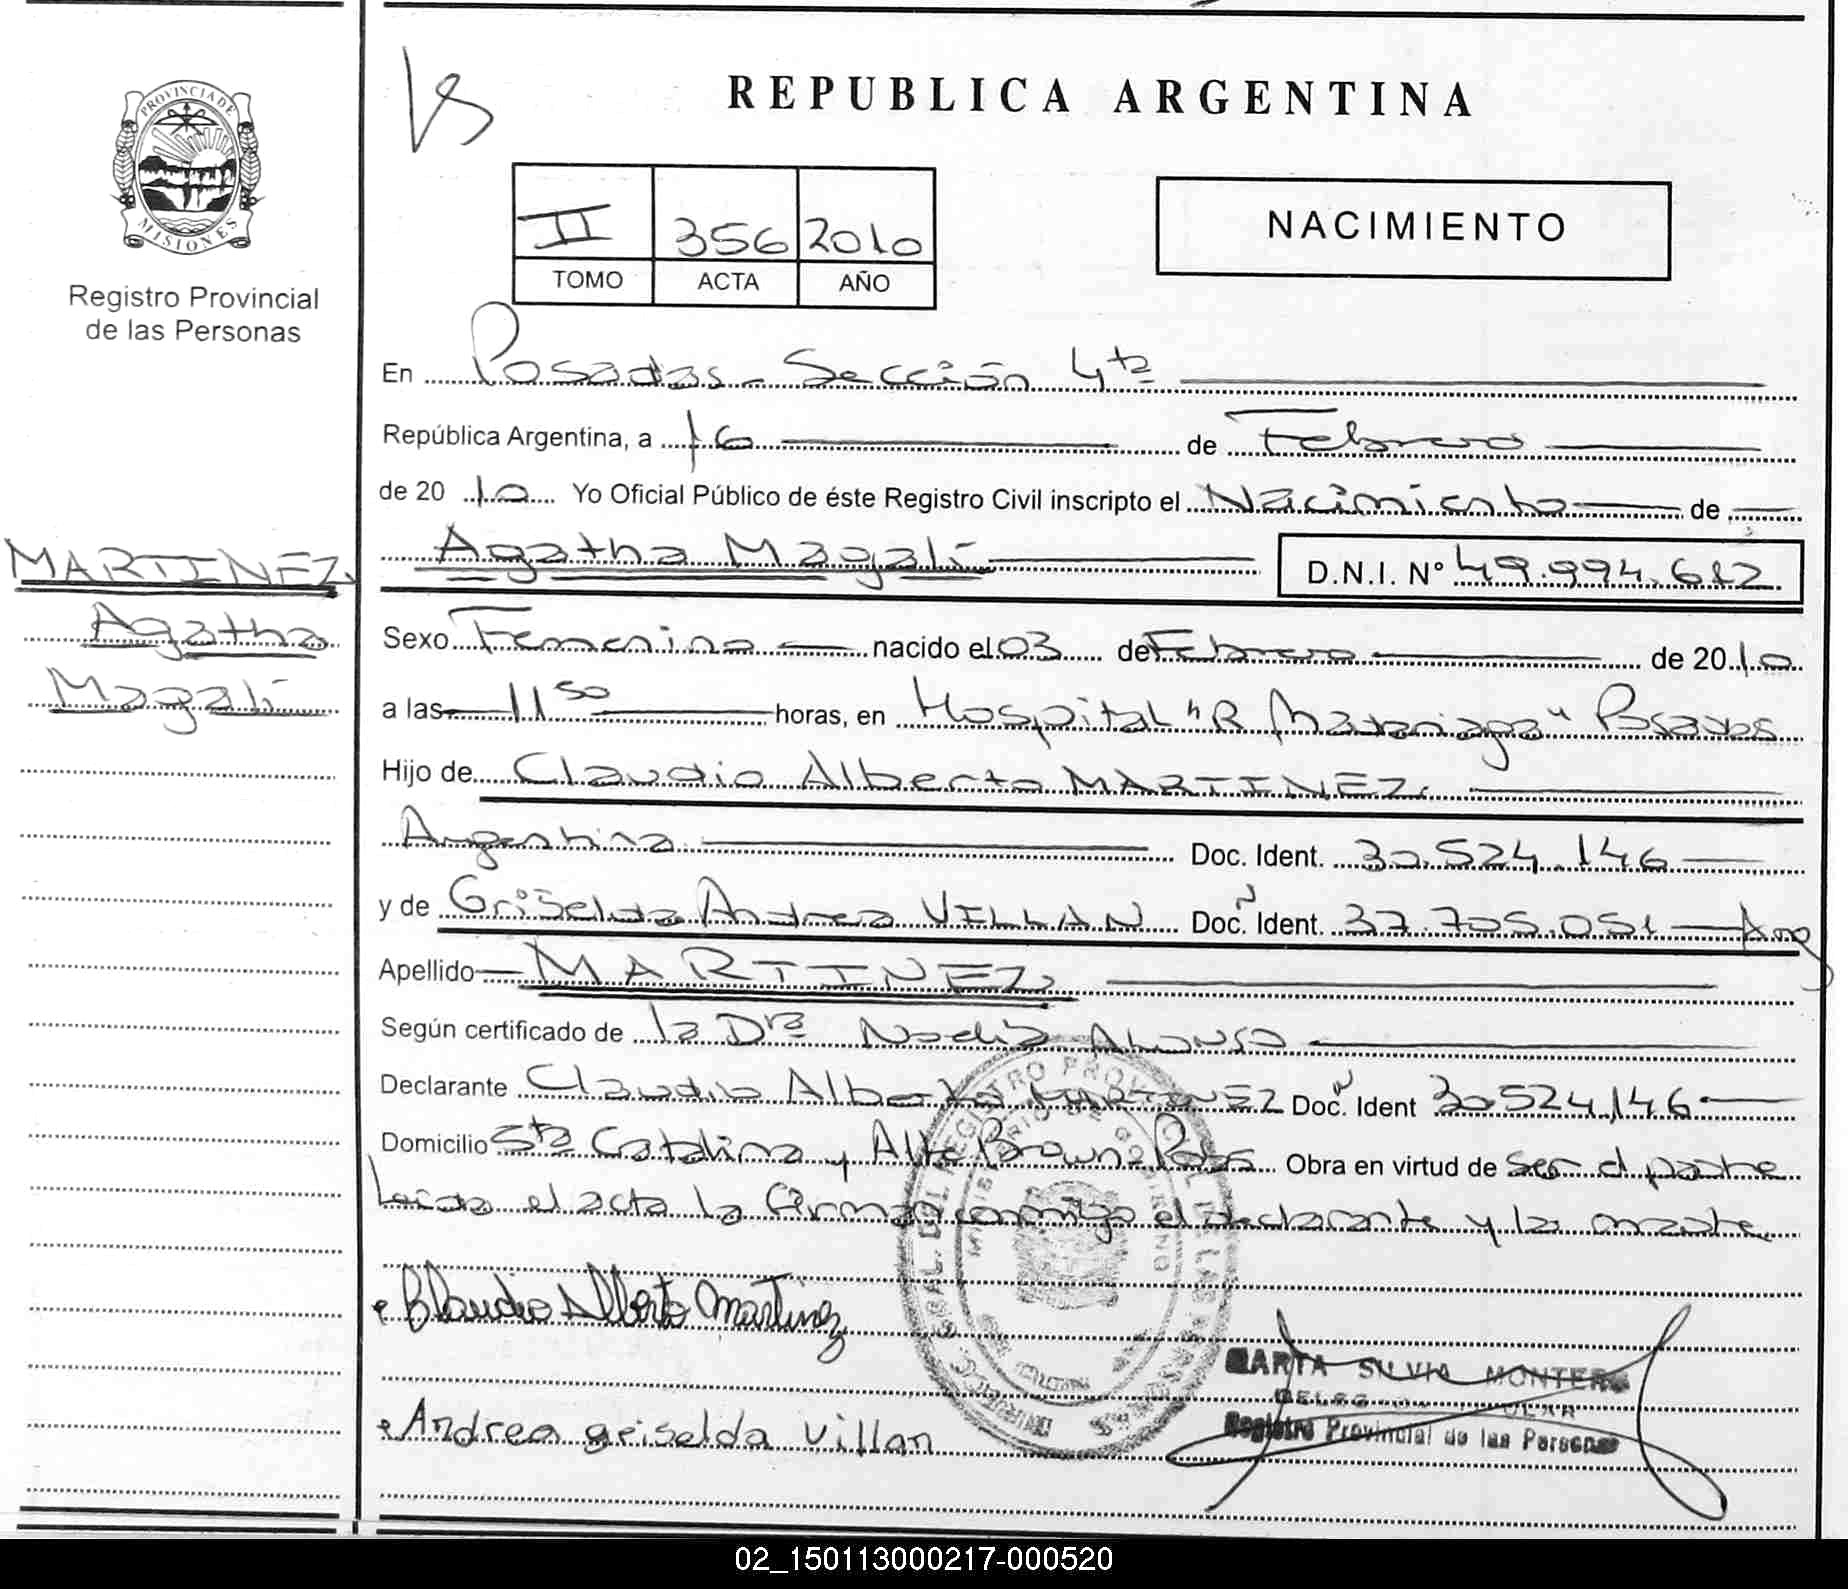 REPUBLICA ARGENTINA
PROVINCIA DE MISIONES
Registro Provincial
de las Personas
II 356 2010
TOMO ACTA AÑO
NACIMIENTO
En Posadas - Sección 4ta
República Argentina, a 16 de Febrero
de 2010 Yo Oficial Público de éste Registro Civil inscripto el Nacimiento de
Agatha Magalí D.N.I. Nº 49.994.612
MARTINEZ
Agatha
Magalí
Sexo Femenino nacido el 03 de Febrero de 2010
a las 11 50 horas, en Hospital "R Madariaga" Posadas
Hijo de Claudio Alberto MARTINEZ
Argentina Doc. Ident. 30.524.146
y de Griselda Andrea VILLAN Doc. Ident. 37.705.051 Arg
Apellido MARTINEZ
Según certificado de la Dra Nadia Alonso
Declarante Claudio Alberto MARTINEZ Doc. Ident 30.524.146
Domicilio Sta Catalina y Alte Brown Pdas Obra en virtud de ser el padre
Leida el acta la firman conmigo el declarante y la madre
Claudio Alberto Martinez
MARTA SILVIA MONTERO
Registro Provincial de las Personas
Andrea griselda villan
02_150113000217-000520